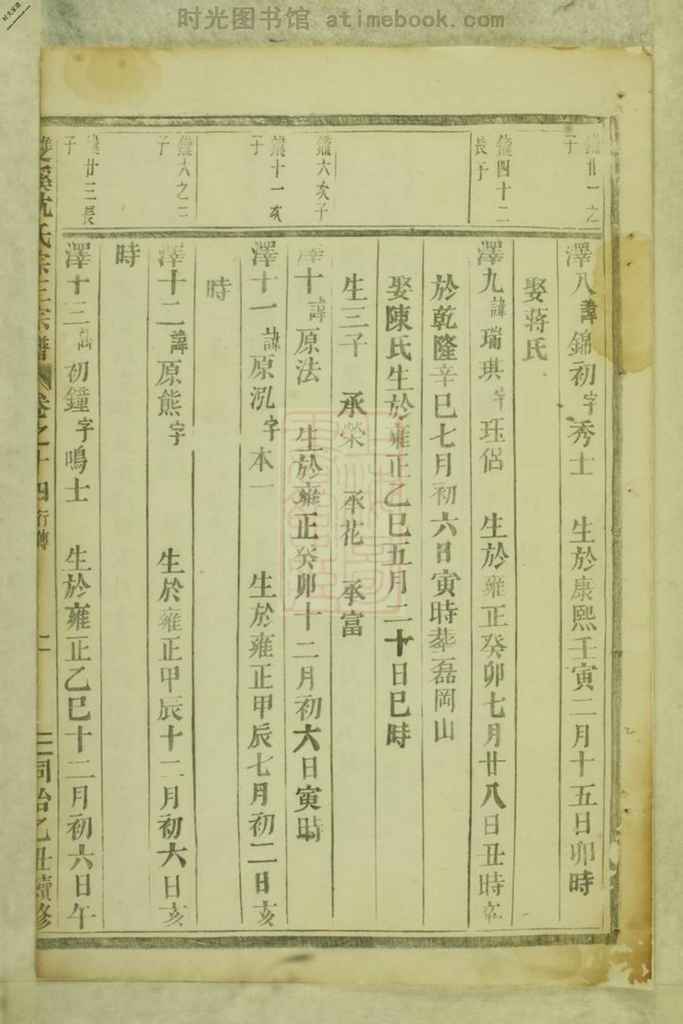 时光图书馆 atimebook.com
鐵廿一之
子
澤八諱錦初字秀士 生於康熙壬寅二月十五日卯時
娶蔣氏
鐵四十二
長子
澤九諱瑞琪字珏侶 生於雍正癸卯七月廿八日丑時卒
於乾隆辛巳七月初六日寅時葬磊岡山
娶陳氏生於雍正乙巳五月二十日巳時
生三子 承榮 承花 承富
鐵六次子
澤十諱原法 生於雍正癸卯十二月初六日寅時
鐵十一次
子
澤十一諱原泓字本一 生於雍正甲辰七月初二日亥
時
鐵六之三
子
澤十二諱原熊字 生於雍正甲辰十二月初六日亥
時
鐵廿三長
子
澤十三諱初鐘字鳴士 生於雍正乙巳十二月初六日午
雙溪沈氏宗譜 卷之十四 行傳 二 同治乙丑續修